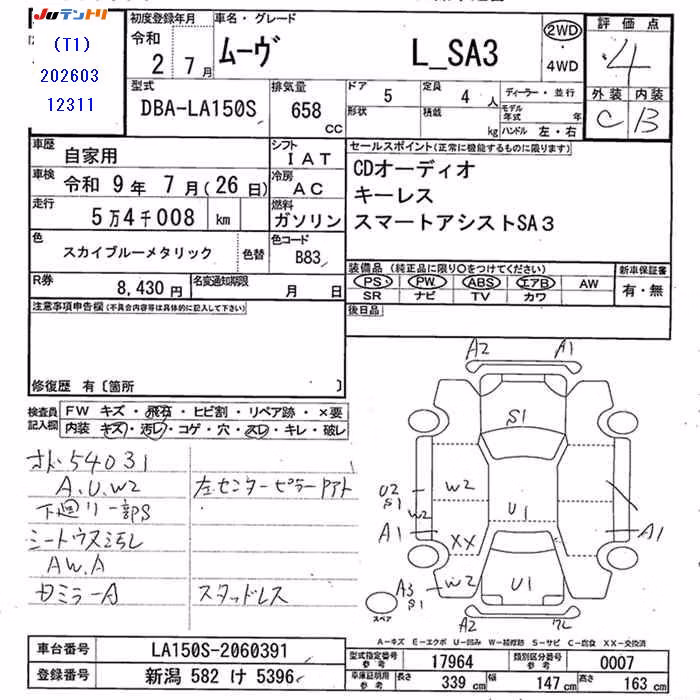 JUテントリ
(T1)
202603
12311
初度登録年月
令和
2 7月
車名・グレード
ムーヴ L_SA3
2WD
・
4WD
評価点
4
外装 内装
C B
型式
DBA-LA150S
排気量
658 cc
ドア 5
形状
定員 4 人
積載 kg
ディーラー・並行
モデル年式 年
ハンドル 左・右
車歴 自家用
シフト IAT
車検 令和 9年 7月(26日)
冷房 AC
走行 5万4千008 km
燃料 ガソリン
色 スカイブルーメタリック 色替
色コード B83
R券 8,430円
名変通知期限 月 日
セールスポイント(正常に機能するものに限ります)
CDオーディオ
キーレス
スマートアシストSA3
装備品(純正品に限り○をつけてください)
PS PW ABS エアB AW
SR ナビ TV カワ
新車保証書
有・無
後日品
注意事項申告欄(不具合内容等は具体的に記入して下さい)
修復歴 有〔箇所 〕
検査員記入欄
FW キズ・飛石・ヒビ割・リペア跡・×要
内装 キズ・汚レ・コゲ・穴・スレ・キレ・破レ
オド54031
A.U.W2 左センターピラーアト
下廻リ一部PS
シートウス汚レ
AW.A
スタッドレス
A2 A1
S1
U2
S1
W2
W2
U1
A1
XX
A1
W2
U1
A3
S1
スペア
A2
A-キズ E-エクボ U-凹み W-補修跡 S-サビ C-腐食 XX-交換済
車台番号 LA150S-2060391
登録番号 新潟 582 け 5396
型式指定番号 参考 17964
類別区分番号 参考 0007
車庫証明用 参考 長さ 339 cm 幅 147 cm 高さ 163 cm